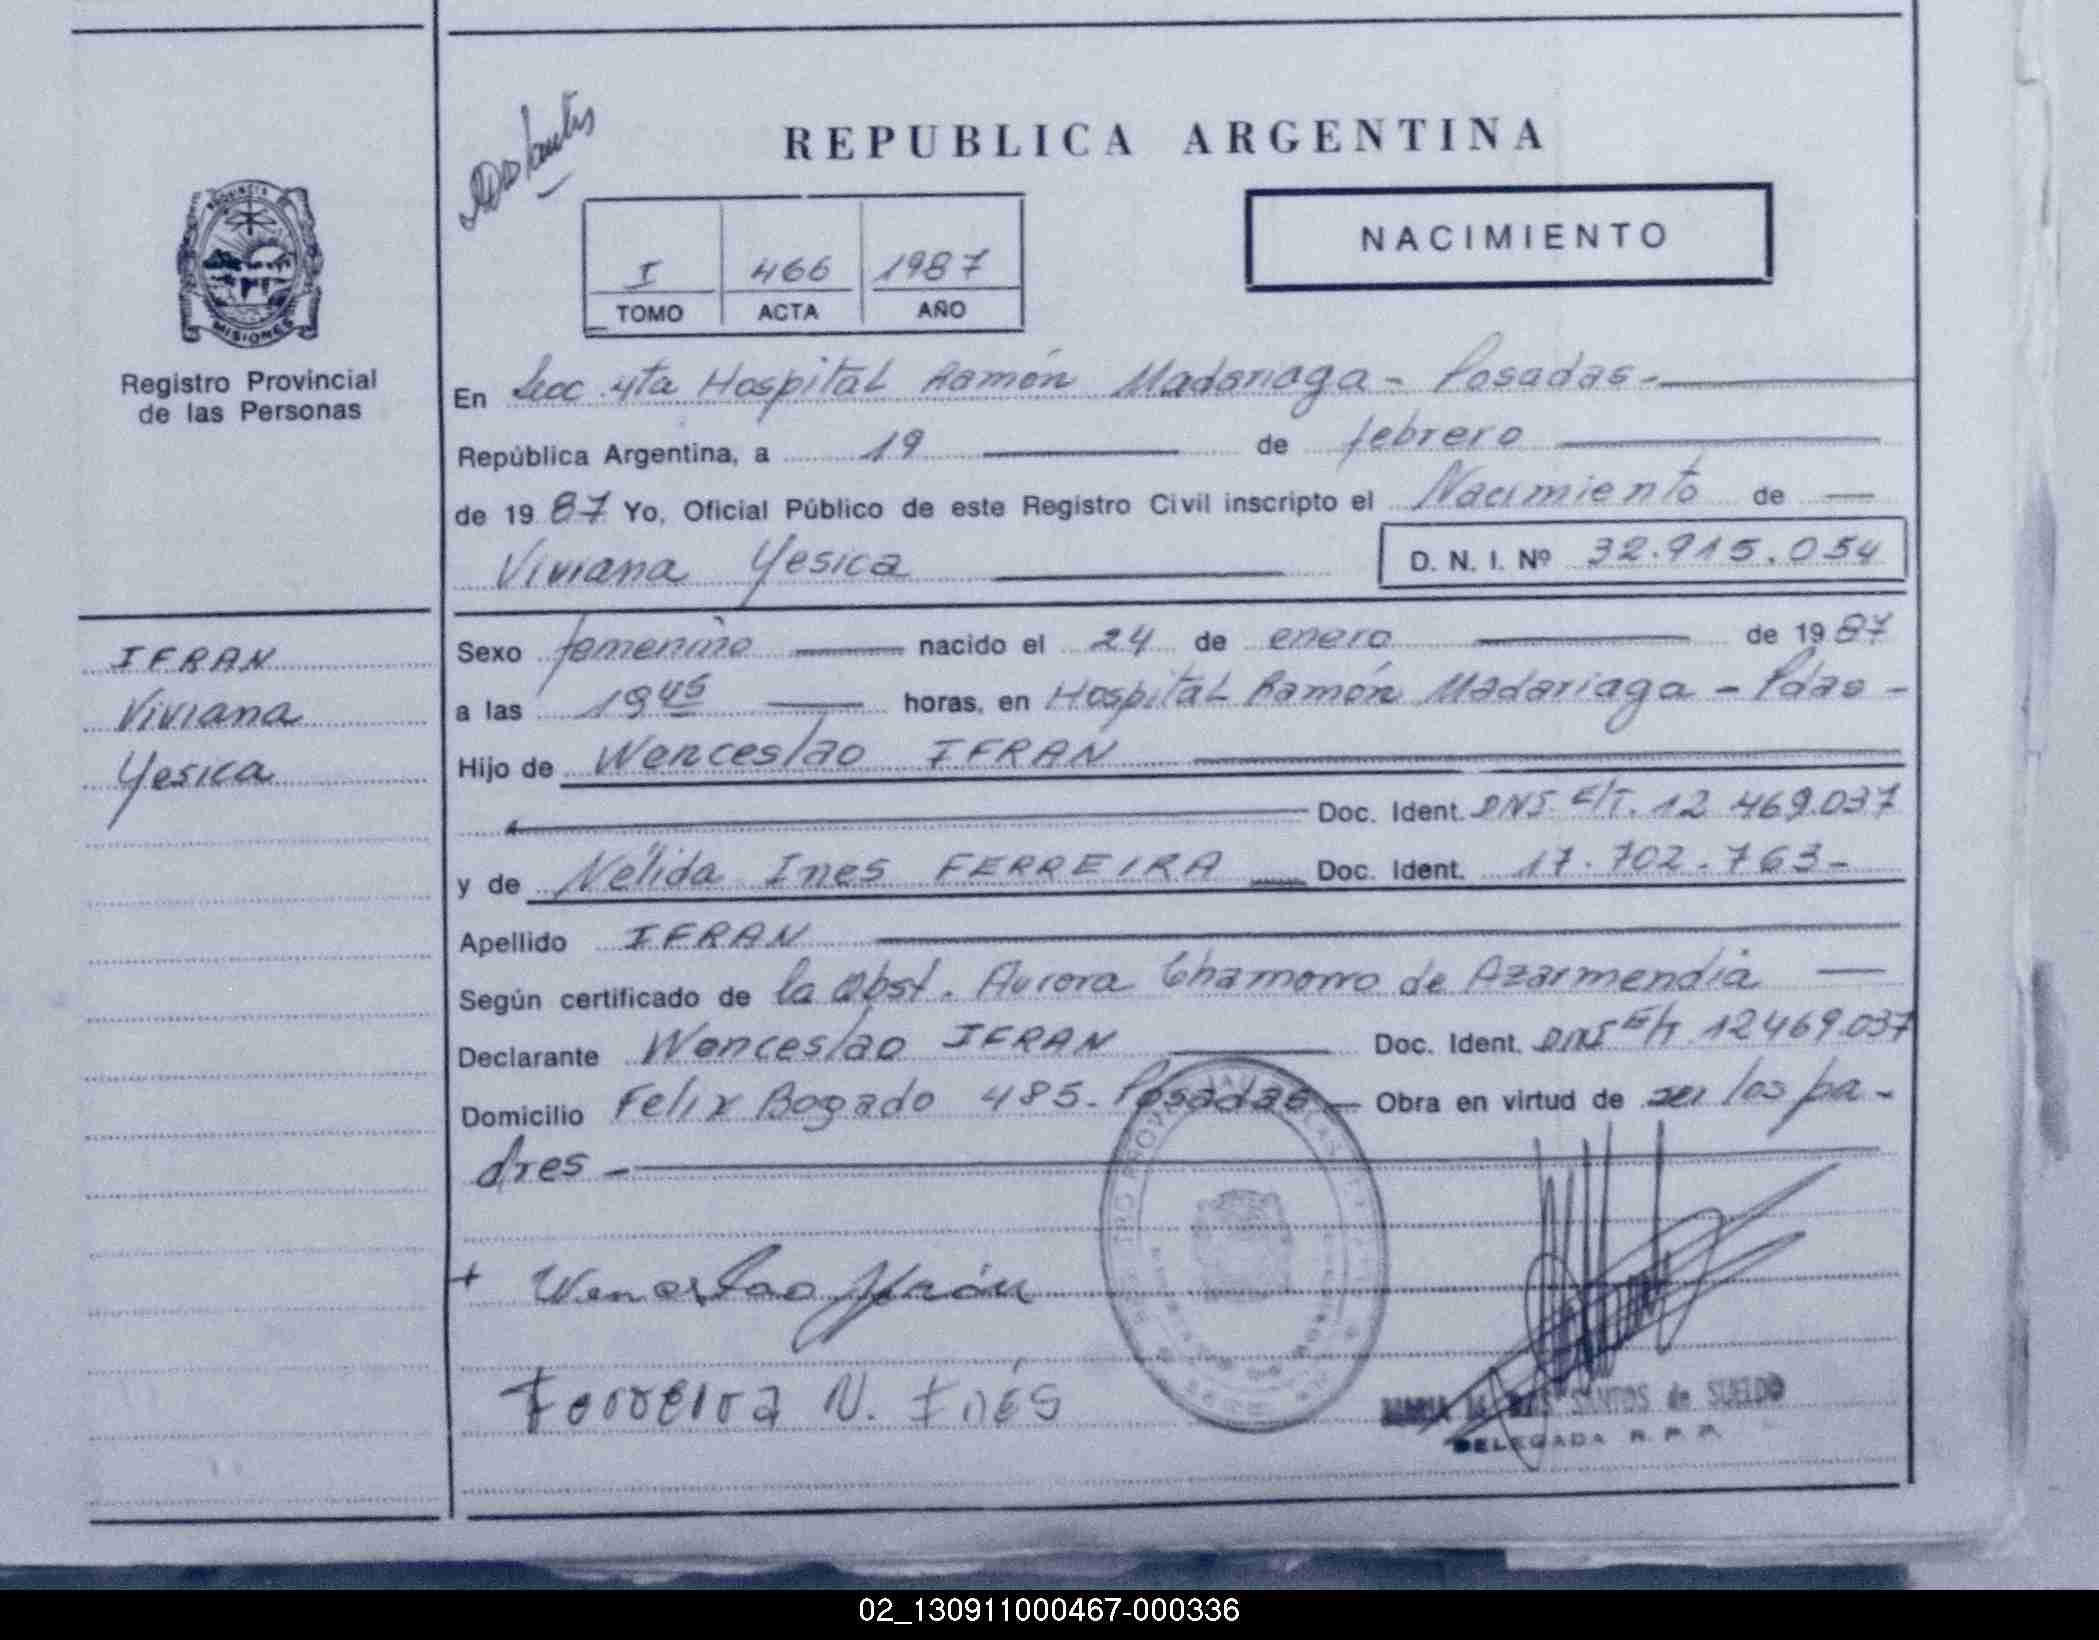 REPUBLICA ARGENTINA
NACIMIENTO
I 466 1987
TOMO ACTA AÑO
PROVINCIA
MISIONES
Registro Provincial
de las Personas
IFRAN
Viviana
Yesica
En Secc. 4ta Hospital Ramón Madariaga - Posadas -
República Argentina, a 19 de febrero
de 1987 Yo, Oficial Público de este Registro Civil inscripto el Nacimiento de
Viviana Yesica D. N. I. Nº 32.915.054
Sexo femenino nacido el 24 de enero de 1987
a las 19 45 horas, en Hospital Ramón Madariaga - Pdas -
Hijo de Wenceslao IFRAN
Doc. Ident. DNI. E/T. 12 469.037
y de Nélida Ines FERREIRA Doc. Ident. 17.702.763-
Apellido IFRAN
Según certificado de la Obst. Aurora Chamorro de Azarmendia
Declarante Wenceslao IFRAN Doc. Ident. DNI E/T 12469.037
Domicilio Felix Bogado 485. Posadas - Obra en virtud de ser los pa-
dres -
+ Wenceslao Ifrán
Ferreira N. Inés
SANTOS de SUELDO
DELEGADA R. P. P.
02_130911000467-000336